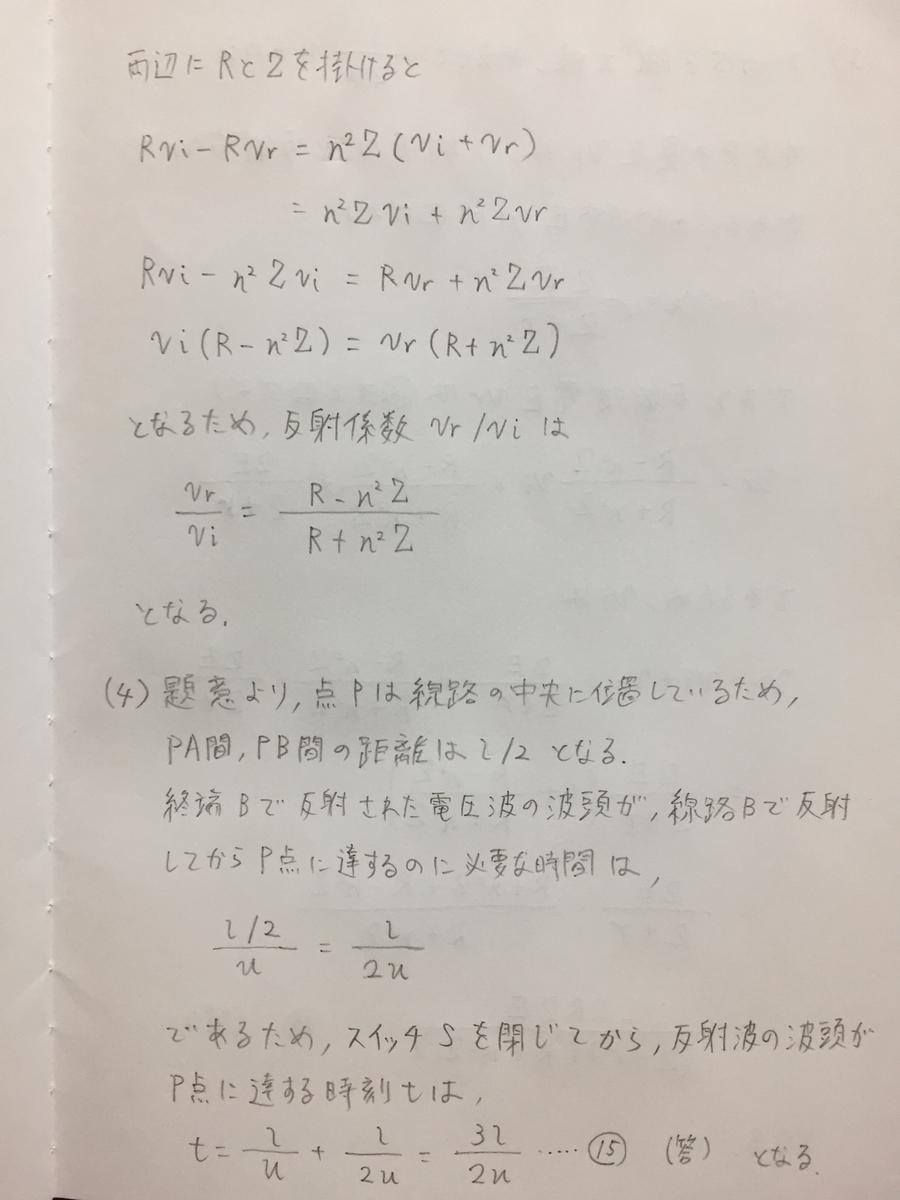 両辺にRとZを掛けると
Rvi-Rvr = n²Z(vi+vr)
= n²Zvi + n²Zvr
Rvi - n²Zvi = Rvr + n²Zvr
vi(R-n²Z) = vr(R+n²Z)
となるため, 反射係数 vr/vi は
vr/vi = (R-n²Z)/(R+n²Z)
となる.
(4) 題意より, 点Pは線路の中央に位置しているため,
PA間, PB間の距離は l/2 となる.
終端Bで反射された電圧波の波頭が, 線路Bで反射
してからP点に達するのに必要な時間は,
(l/2)/u = l/2u
であるため, スイッチSを閉じてから, 反射波の波頭が
P点に達する時刻tは,
t = l/u + l/2u = 3l/2u ..... ⑮ (答) となる.